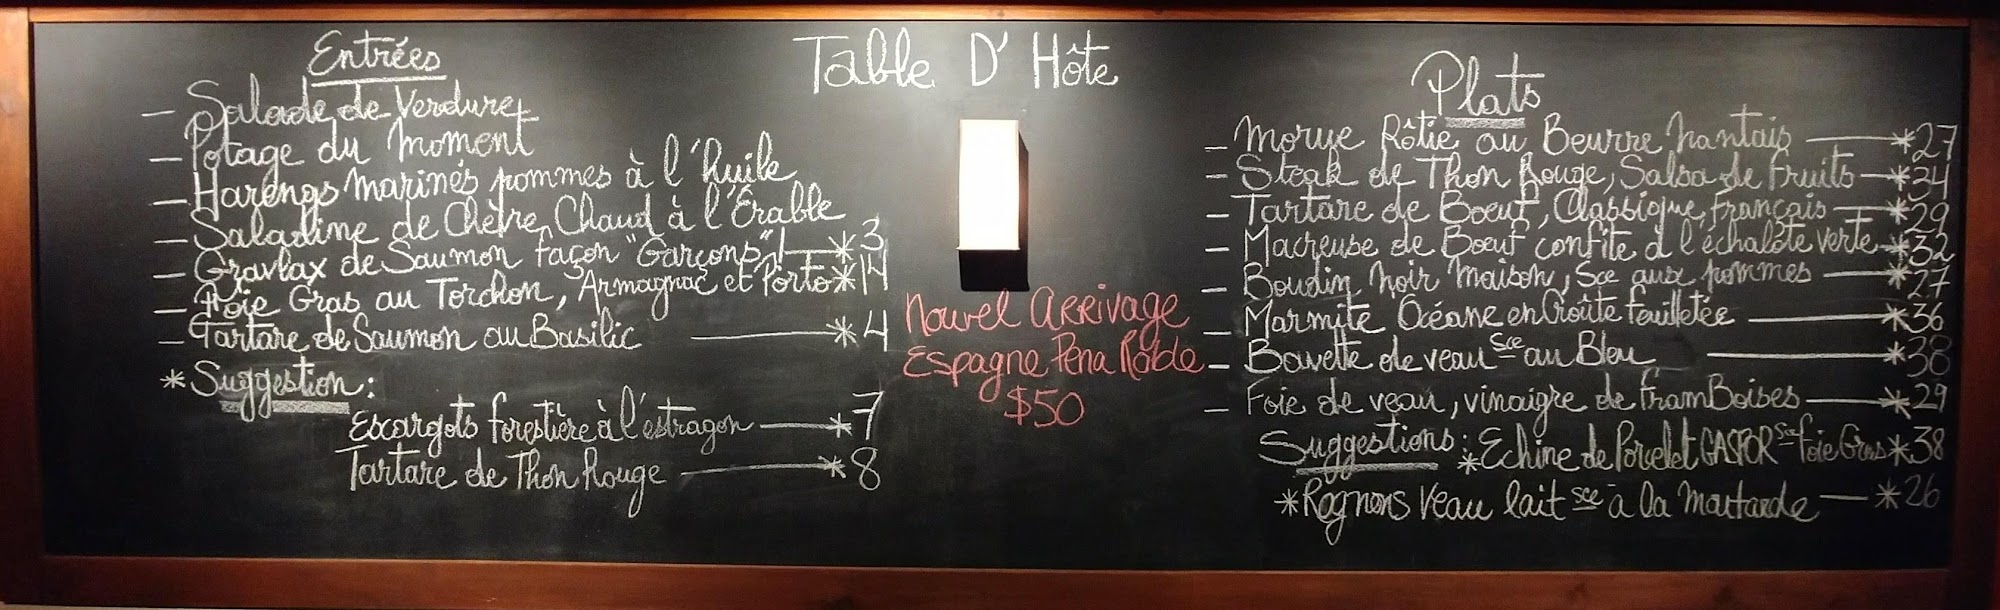 Table D'Hôte
Entrées
- Salade de Verdure
- Potage du moment
- Harengs marinés pommes à l'huile
- Saladine de Chèvre Chaud à l'Érable
- Gravlax de Saumon façon "Garçons"! * 3
- Foie Gras au Torchon, Armagnac et Porto * 14
- Tartare de Saumon au Basilic * 4
* Suggestion:
Escargots forestière à l'estragon * 7
Tartare de Thon Rouge * 8
Nouvel Arrivage
Espagne Pena Roble
$50
Plats
- Morue Rôtie au Beurre nantais * 27
- Steak de Thon Rouge, Salsa de fruits * 34
- Tartare de Boeuf, Classique français * 29
- Macreuse de Boeuf confite à l'échalote verte * 32
- Boudin noir maison, Sce aux pommes * 27
- Marmite Océane en Croûte feuilletée * 36
- Bavette de veau sce au Bleu * 38
- Foie de veau, vinaigre de framBoises * 29
Suggestions: * Echine de Porcelet GASPOR sce foie Gras * 38
* Rognons Veau lait sce à la moutarde * 26